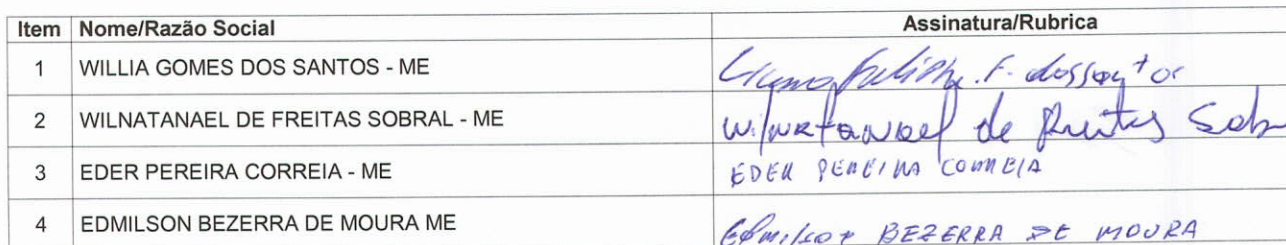 Item Nome/Razão Social Assinatura/Rubrica
1 WILLIA GOMES DOS SANTOS - ME F. dos santos
2 WILNATANAEL DE FREITAS SOBRAL - ME Wilnatanael de Freitas Sob
3 EDER PEREIRA CORREIA - ME EDER PEREIRA CORREIA
4 EDMILSON BEZERRA DE MOURA ME Edmilson BEZERRA DE MOURA